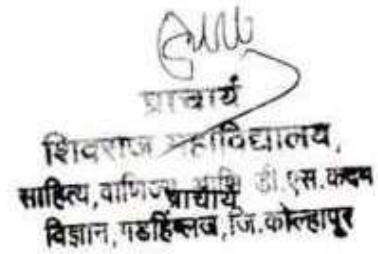 प्राचार्य
शिवराज महाविद्यालय,
साहित्य, वाणिज्य आणि डी.एस.कदम
प्राचार्य
विज्ञान, गडहिंग्लज, जि.कोल्हापूर